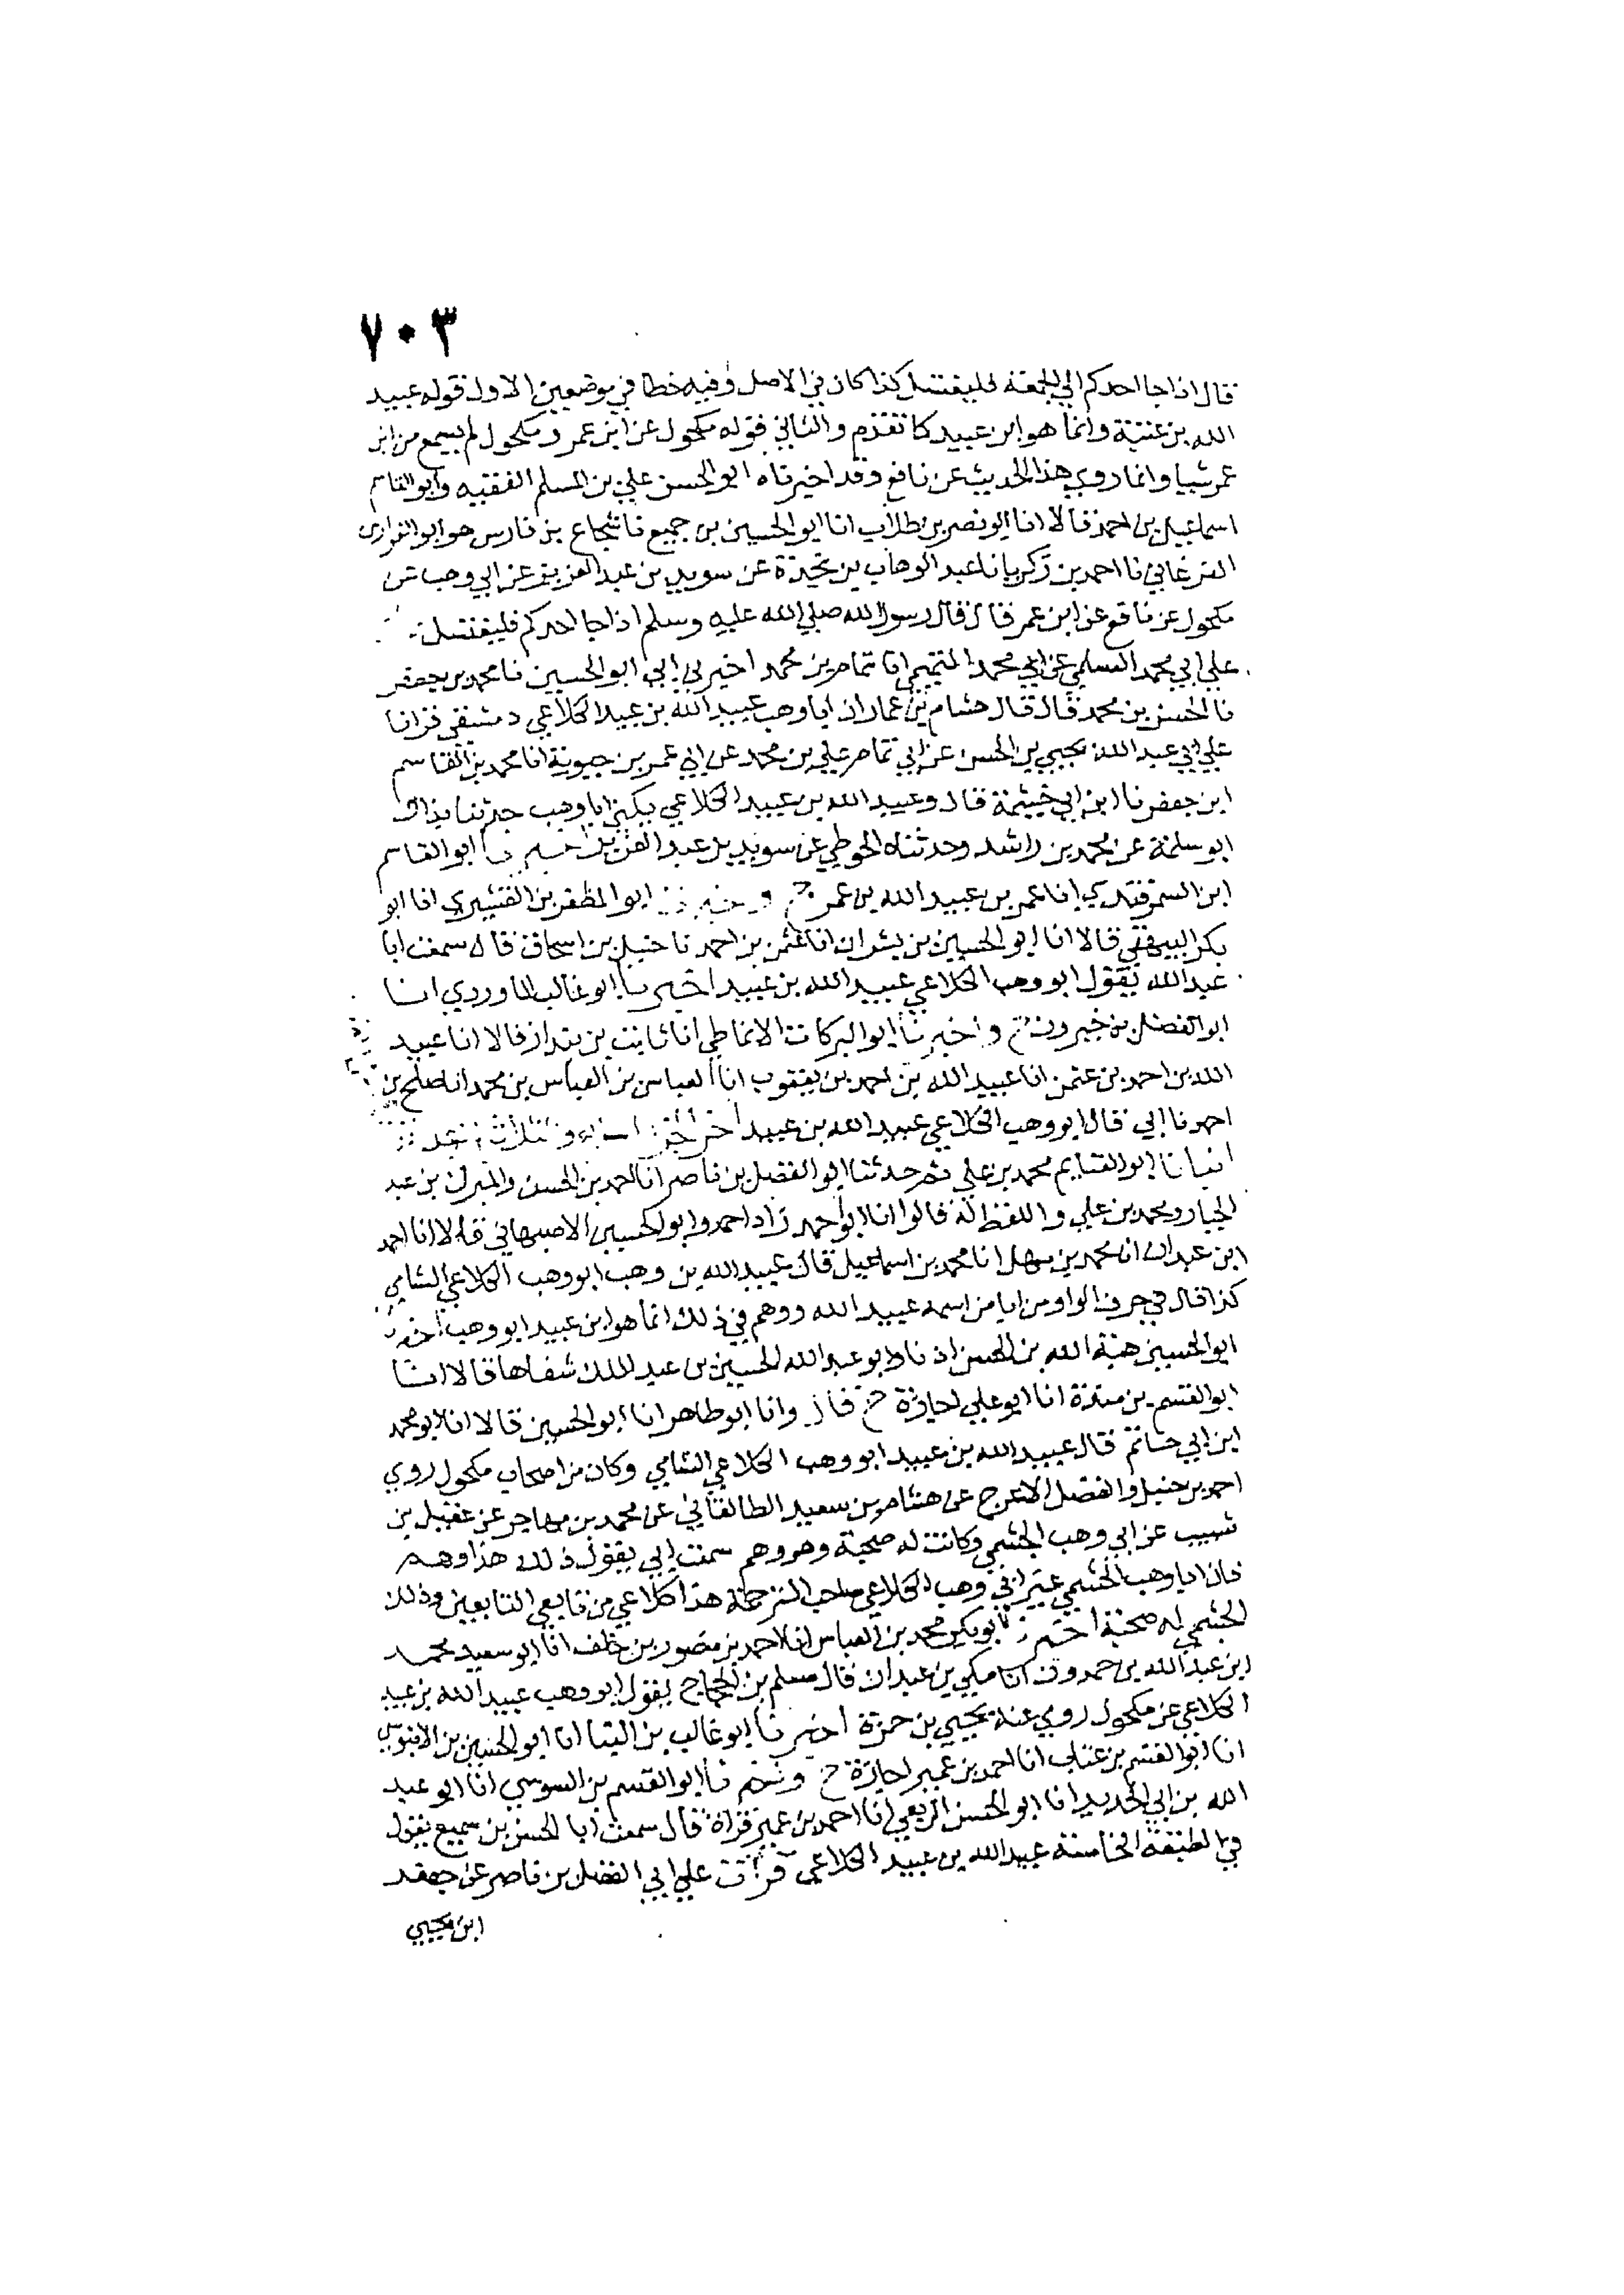 ٧٠٣
قال اذا جا احدكم الي الجمعة فليغتسل كذا كان في الاصل وفيه خطا في موضعين الاول قوله عبيد
الله بن عتبة وانما هو ابن عبيد كما تقدم والثاني قوله مكحول عن ابن عمر ومكحول لم يسمع من ابن
عمر شيا وانما روي هذا الحديث عن نافع وقد اخبرناه ابو الحسن علي بن المسلم الفقيه وابو القاسم
اسماعيل بن احمد قالا انا ابو نصر بن طلاب انا ابو الحسين بن جميع نا شجاع بن فارس هو ابو الفوارس
الفرغاني نا احمد بن زكريا نا عبد الوهاب بن نجدة عن سويد بن عبد العزيز عن ابي وهب عن
مكحول عن نافع عن ابن عمر قال قال رسول الله صلي الله عليه وسلم اذا جا احدكم فليغتسل
علي ابي محمد السلمي عن ابي محمد التميمي انا تمام بن محمد اخبرني ابي ابو الحسين نا محمد بن جعفر
نا الحسن بن محمد قال قال هشام بن عمار ان ابا وهب عبيد الله بن عبيد الكلاعي دمشقي قرانا
علي ابي عبد الله يحيي بن الحسن عن ابي تمام علي بن محمد عن ابي عمر بن حيوية انا محمد بن القاسم
ابن جعفر نا ابن ابي خيثمة قال وعبيد الله بن عبيد الكلاعي يكني ابا وهب حدثنا بذاك
ابو سلمة عن محمد بن راشد وحدثناه الحوطي عن سويد بن عبد العزيز اخبرنا ابو القاسم
ابن السمرقندي انا عمر بن عبيد الله بن عمر ح و ابو المظفر بن القشيري انا ابو
بكر البيهقي قالا انا ابو الحسين بن بشران انا عثمن بن احمد نا حنبل بن اسحاق قال سمعت ابا
عبد الله يقول ابو وهب الكلاعي عبيد الله بن عبيد اخبرنا ابو غالب الماوردي انا
ابو الفضل بن خيرون ح واخبرنا ابو البركات الانماطي انا ثابت بن بندار قالا انا عبيد
الله بن احمد بن عثمن انا عبيد الله بن احمد بن يعقوب انا العباس بن العباس بن محمد انا صلح بن
احمد نا ابي قال ابو وهب الكلاعي عبيد الله بن عبيد
انبانا ابو الغنايم محمد بن علي ثم حدثنا ابو الفضل بن ناصر انا احمد بن الحسن والمبرك بن عبد
الجبار ومحمد بن علي واللفظ له قالوا انا ابو احمد زاد احمد وابو الحسين الاصبهاني قالا انا احمد
ابن عبدان انا محمد بن سهل انا محمد بن اسماعيل قال عبيد الله بن وهب ابو وهب الكلاعي الشامي
كذا قال في حرف الواو من ابا من اسمه عبيد الله ووهم في ذلك انما هو ابن عبيد ابو وهب
ابو الحسين هبة الله بن الحسن اذنا وابو عبد الله الحسين بن عبد الملك شفاها قالا انا
ابو القسم بن مندة انا ابو علي اجازة ح قال وانا ابو طاهر انا ابو الحسين قالا انا ابو محمد
ابن ابي حاتم قال عبيد الله بن عبيد ابو وهب الكلاعي الشامي وكان من اصحاب مكحول روي
احمد بن حنبل والفضل الاعرج عن هشام بن سعيد الطالقاني عن محمد بن مهاجر عن عقيل بن
شبيب عن ابي وهب الجشمي وكانت له صحبة وهو وهم سمعت ابي يقول ذلك هذا وهم
فان ابا وهب الجشمي غير ابي وهب الكلاعي صاحب الترجمة هذا كلاعي من تابعي التابعين وذلك
الجشمي له صحبة ابو بكر محمد بن العباس انا احمد بن منصور بن خلف انا ابو سعيد محمد
ابن عبد الله بن حمدون انا مكي بن عبدان قال مسلم بن الحجاج يقول ابو وهب عبيد الله بن عبيد
الكلاعي عن مكحول روي عنه يحيي بن حمزة اخبرنا ابو غالب بن البنا انا ابو الحسين بن الابنوسي
انا ابو القسم بن عتاب انا احمد بن عمير اجازة ح واخبرنا ابو القسم بن السوسي انا ابو عبد
الله بن ابي الحديد انا ابو الحسن الربعي انا احمد بن عمير قراة قال سمعت ابا الحسن بن سميع يقول
في الطبقة الخامسة عبيد الله بن عبيد الكلاعي قرات علي ابي الفضل بن ناصر عن جعفر
ابن يحيي